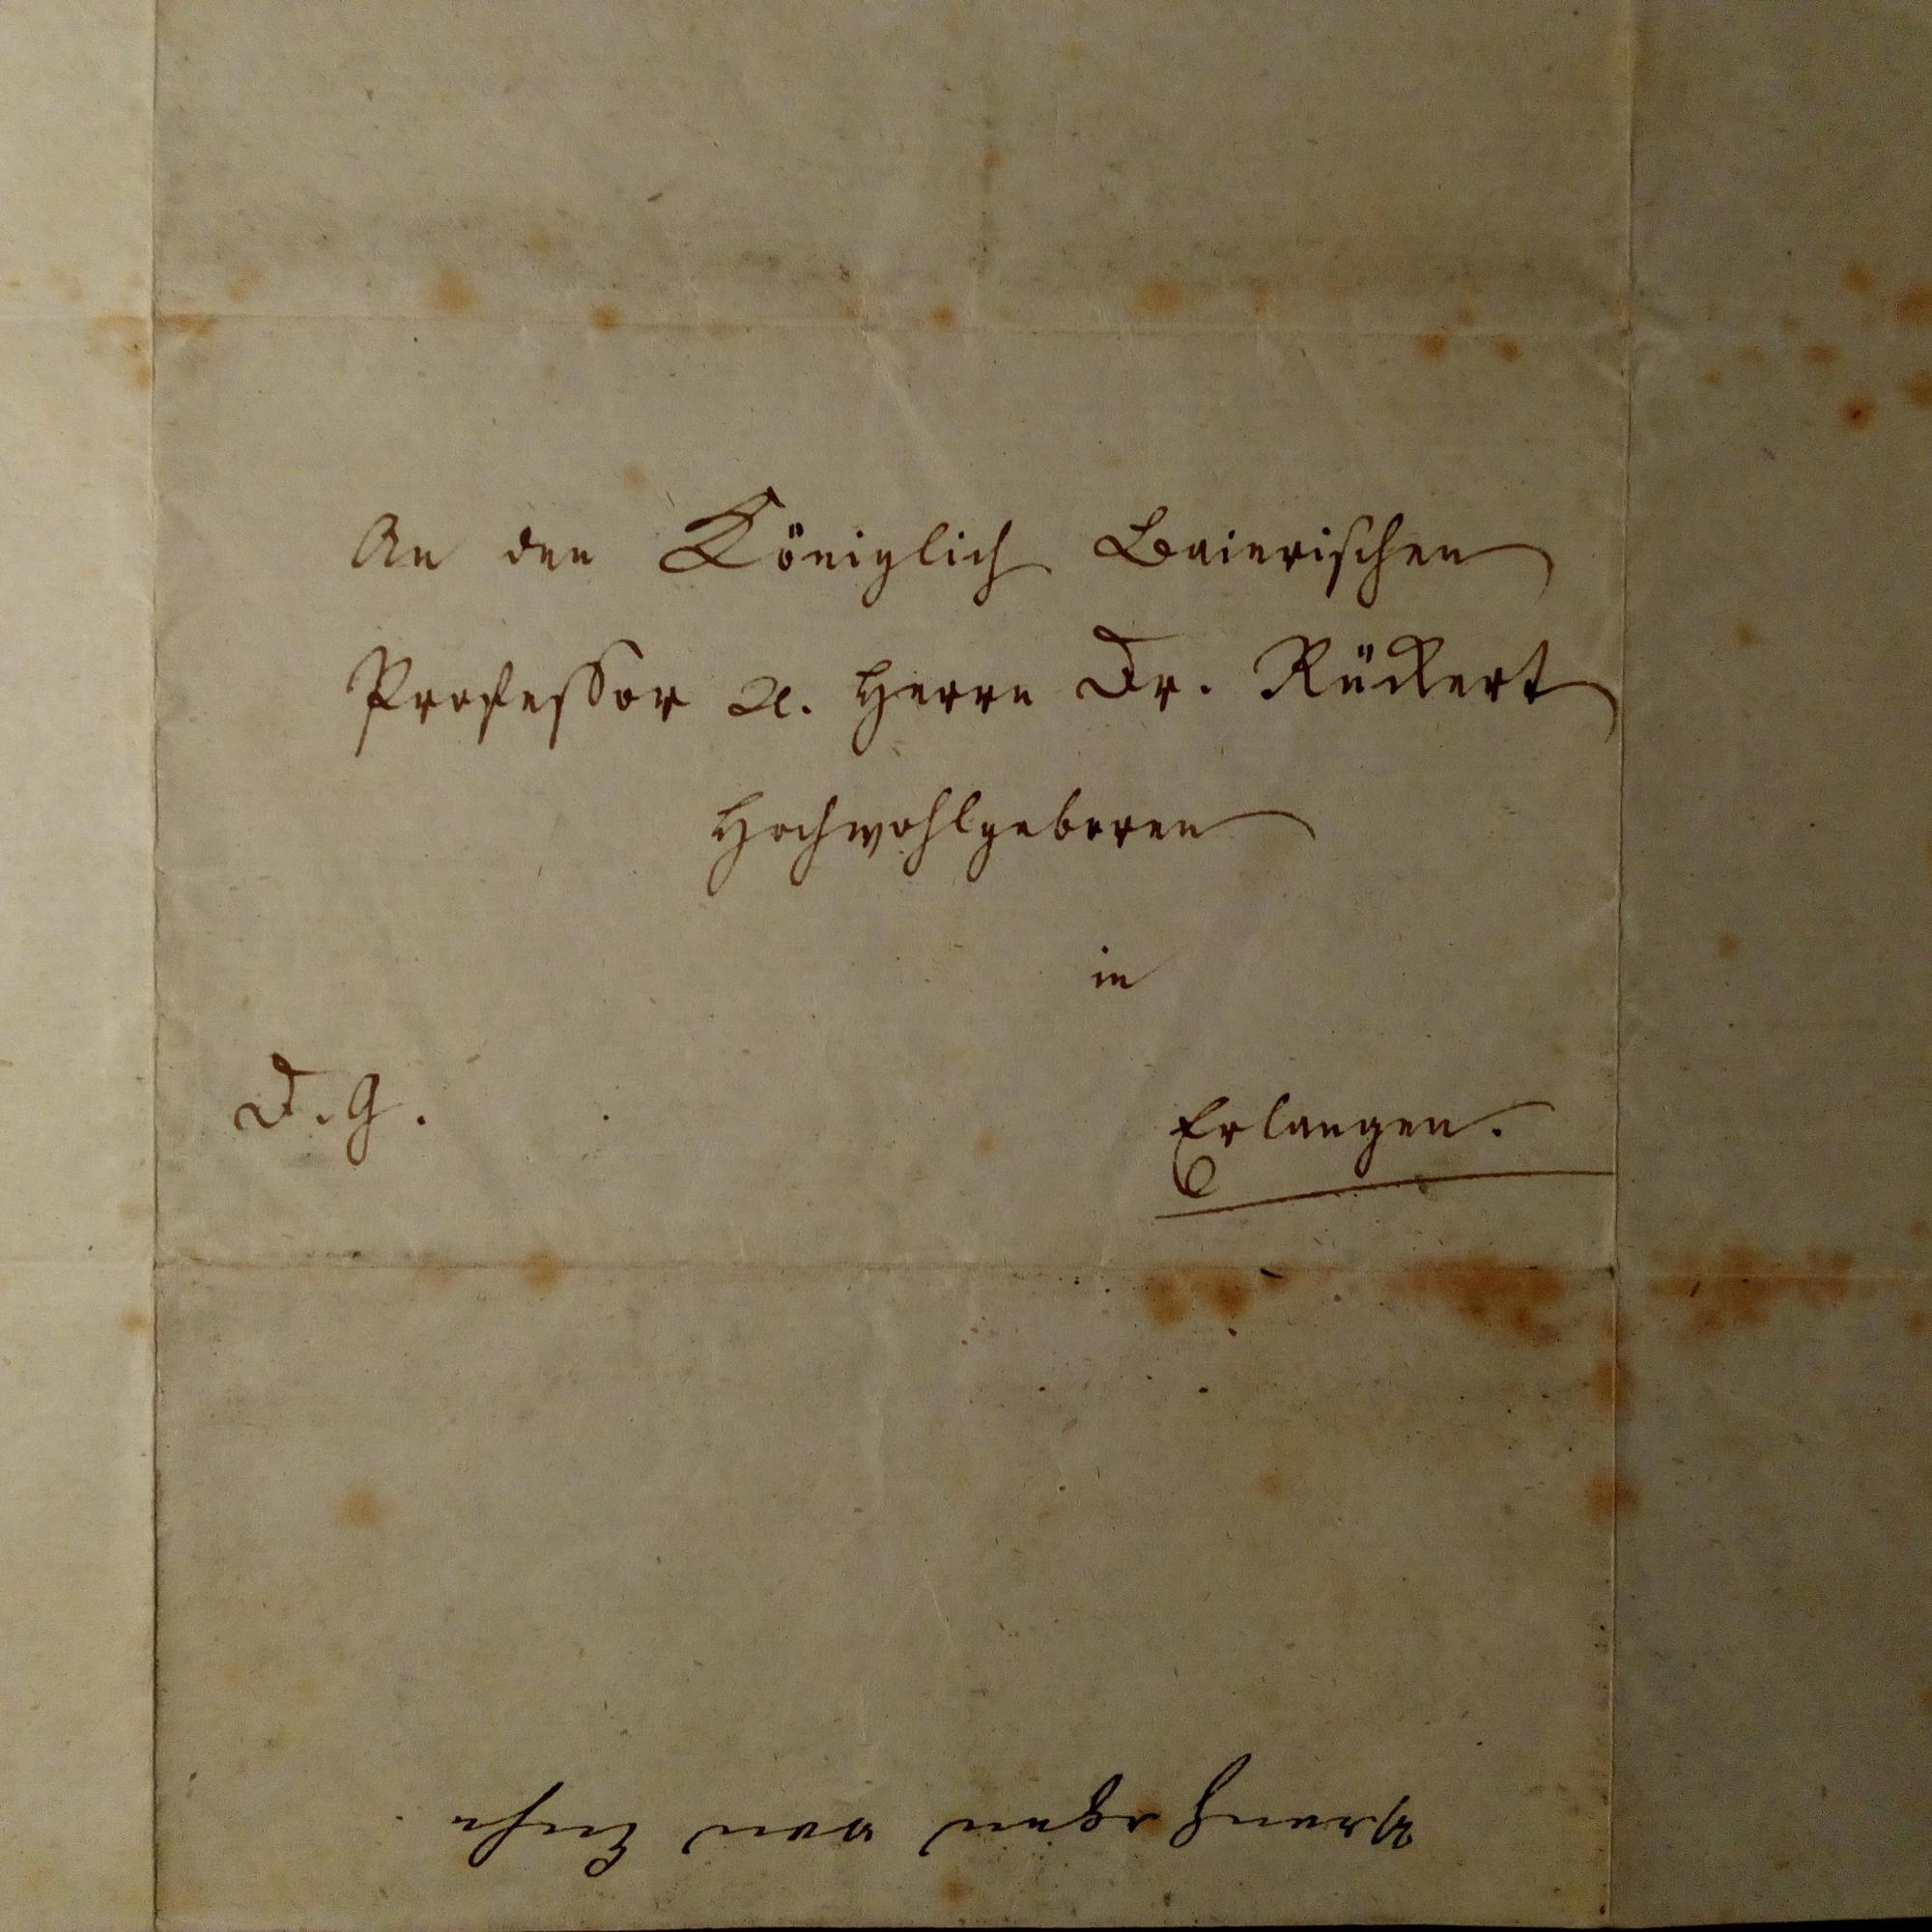 An den Königlich Baierischen
Professor u. Herrn Dr. Rückert
Hochwohlgeboren
in
D. G.
Erlangen.
von